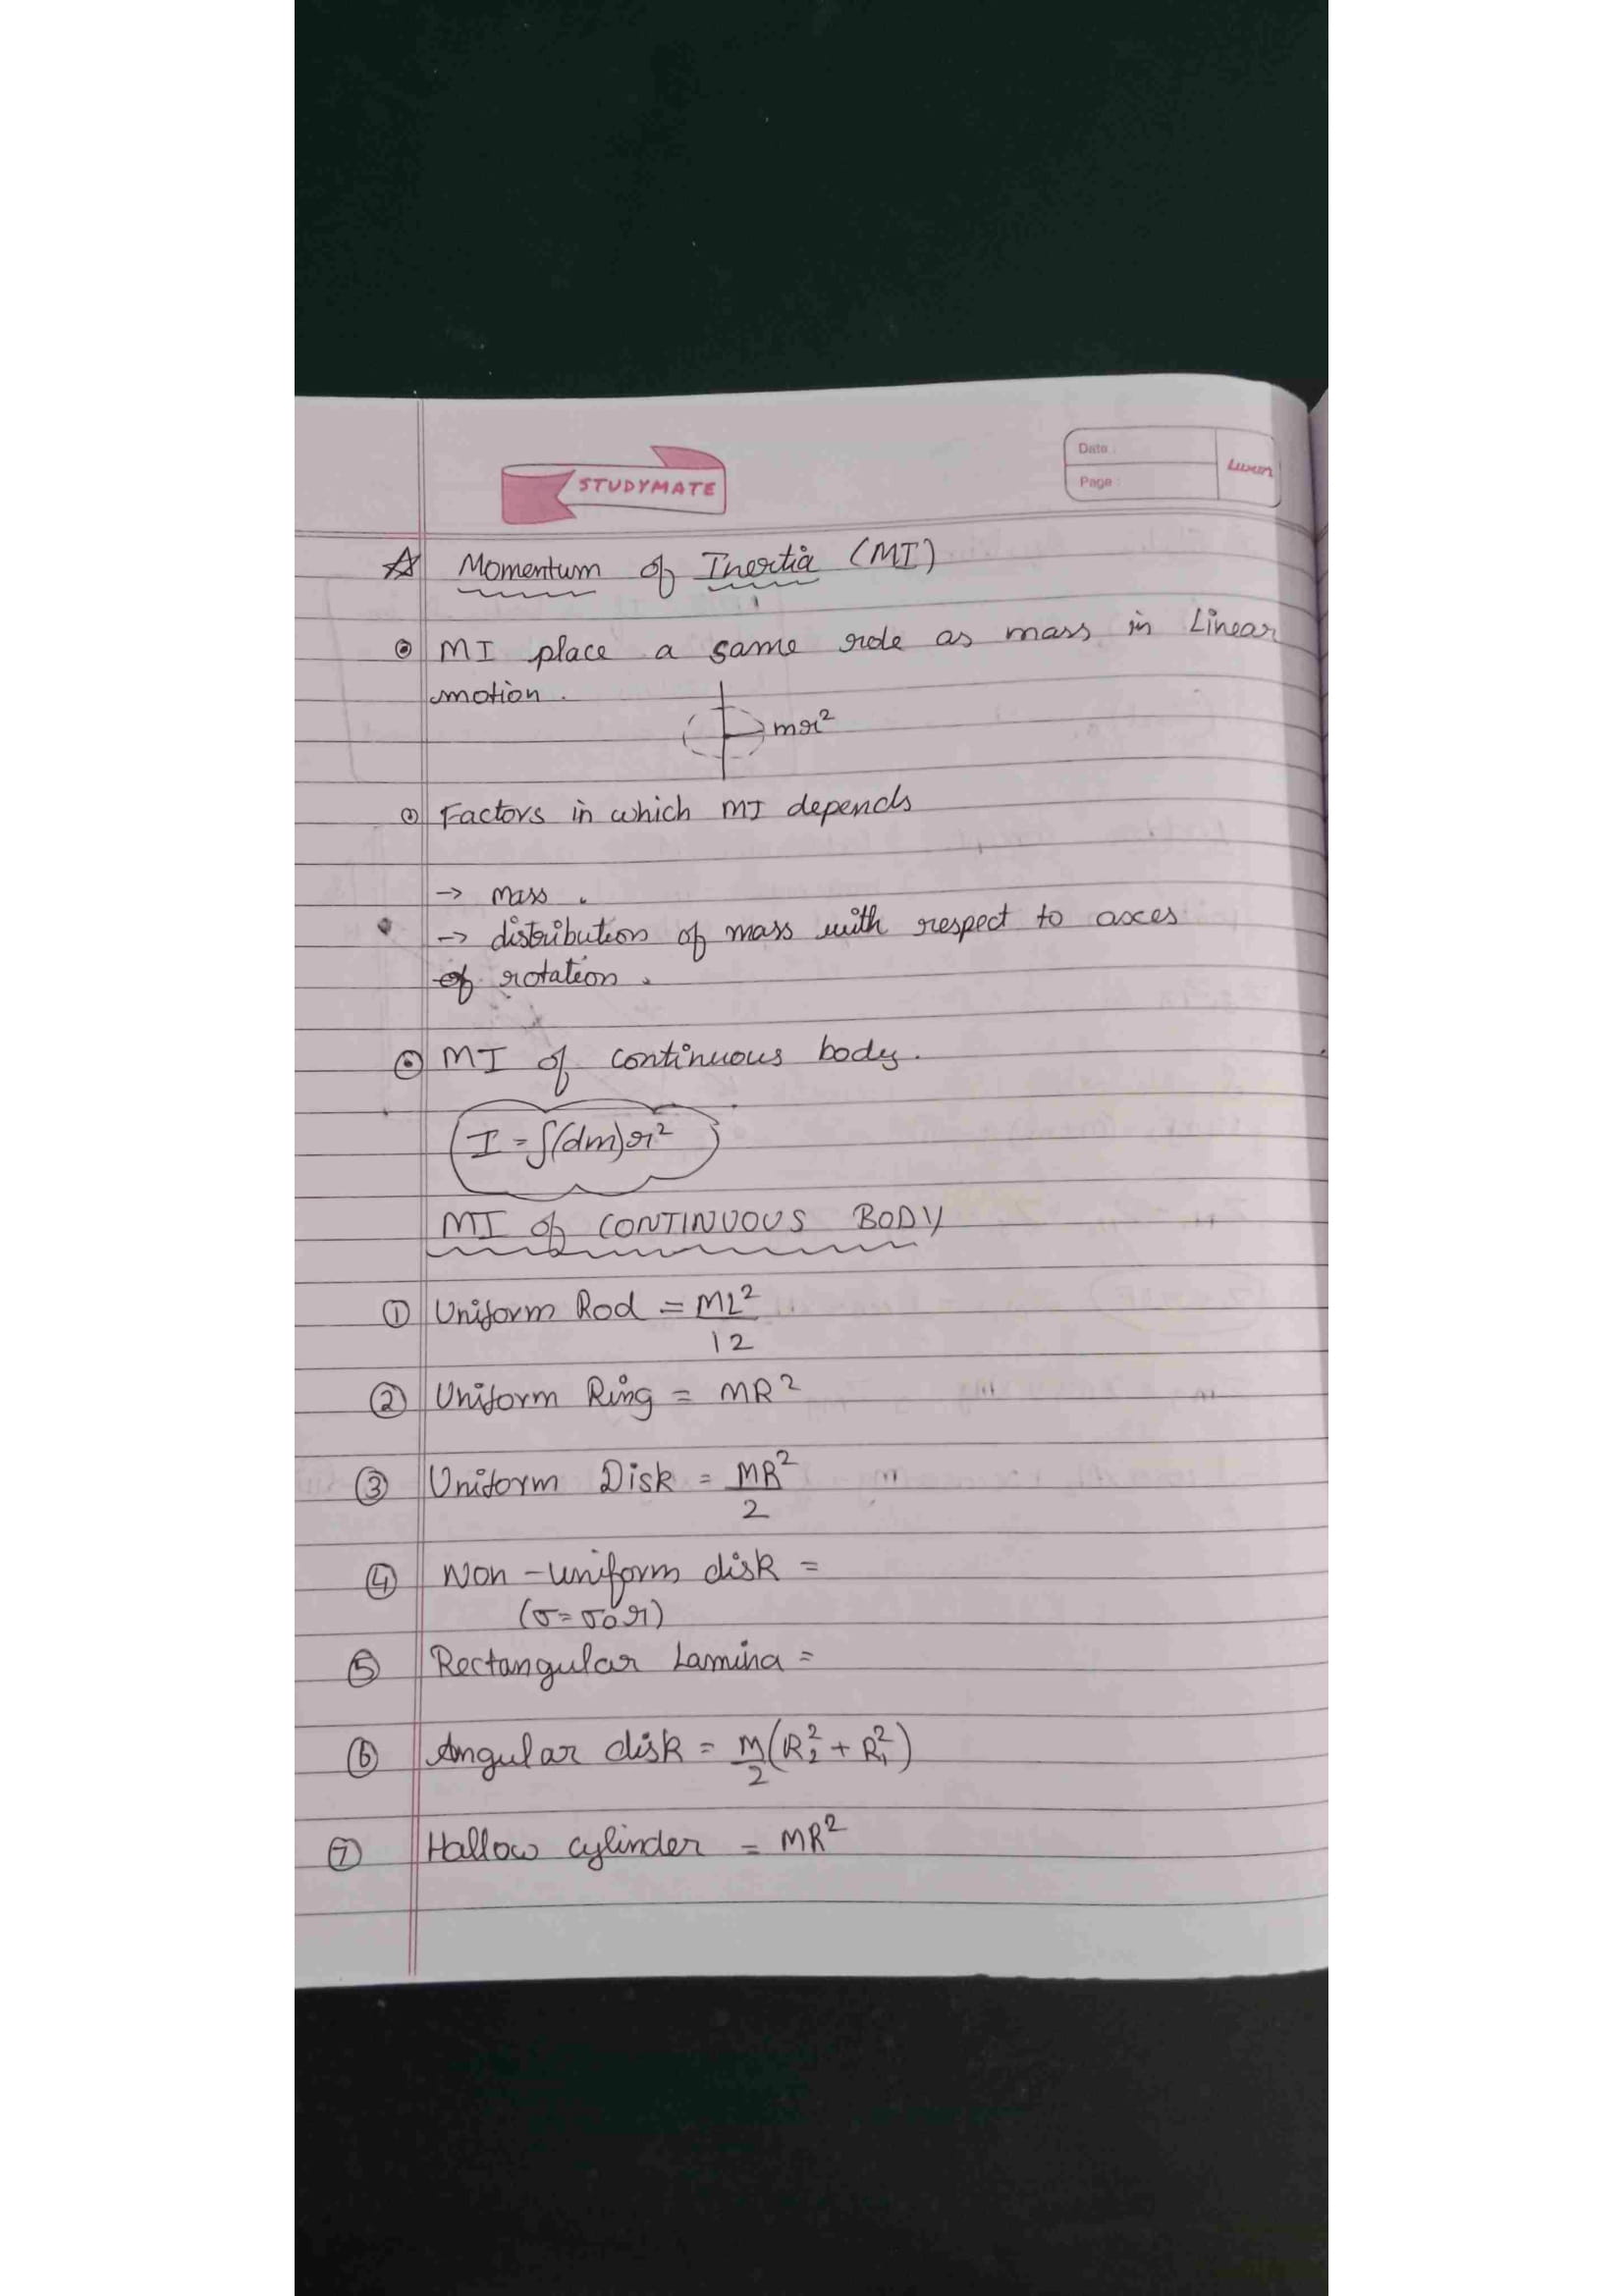 STUDYMATE
Date :
Page :
Luxor
Momentum of Inertia (MI)
MI place a same role as mass in Linear
motion.
mr²
Factors in which MI depends
→ mass.
→ distribution of mass with respect to axes
of rotation.
MI of continuous body.
I = ∫(dm)r²
MI of CONTINUOUS BODY
① Uniform Rod = ML²
12
② Uniform Ring = MR²
③ Uniform Disk = MR²
2
④ Non-uniform disk =
(σ = σ₀r)
⑤ Rectangular Lamina =
⑥ Angular disk = M/2 (R₂² + R₁²)
⑦ Hallow cylinder = MR²